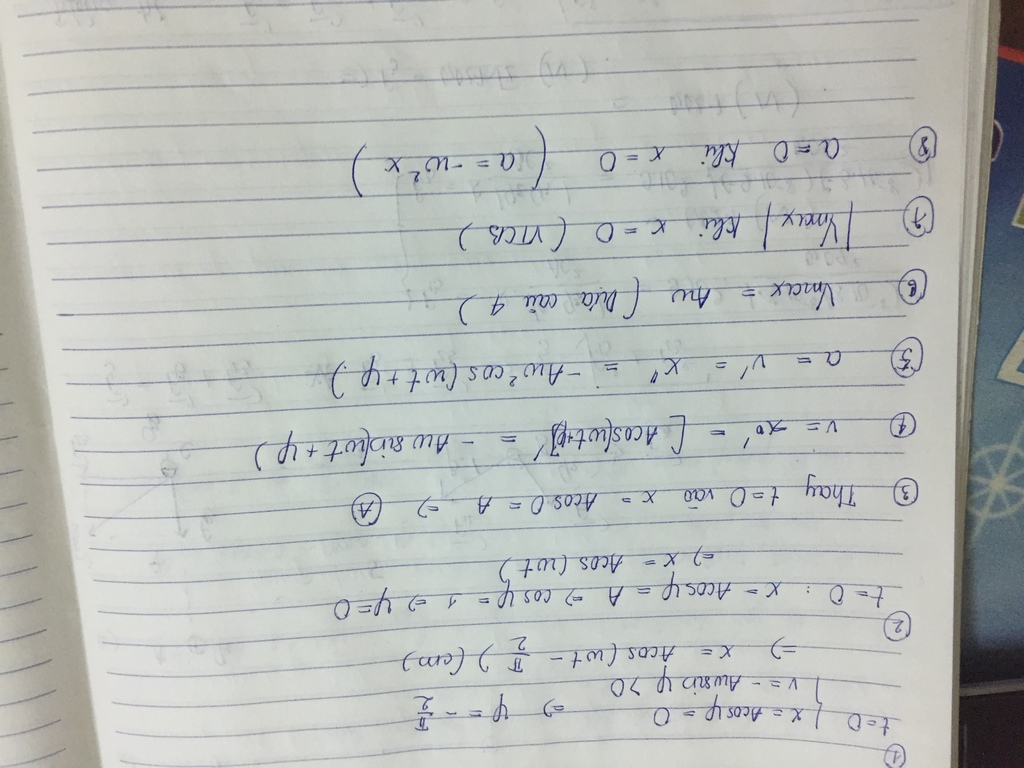 ①
t=0 { x = Acosφ = 0
v = -Aωsinφ > 0 => φ = -π/2
=> x = Acos(ωt - π/2) (cm)
②
t=0 : x = Acosφ = A => cosφ = 1 => φ=0
=> x = Acos(ωt)
③ Thay t=0 vào x = Acos0 = A => Ⓐ
④ v = x' = [Acos(ωt+φ)]' = -Aωsin(ωt+φ)
⑤ a = v' = x'' = -Aω²cos(ωt+φ)
⑥ Vmax = Aω (Dựa câu 4)
⑦ |Vmax| khi x = 0 (VTCB)
⑧ a=0 khi x=0 (a = -ω²x)